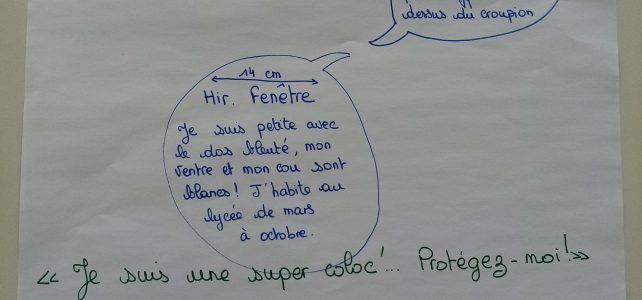 dessus du croupion
14 cm
Hir. Fenêtre
Je suis petite avec
le dos bleuté, mon
ventre et mon cou sont
blancs! J'habite au
lycée de mars
à octobre.
« Je suis une super coloc'... Protégez-moi!»